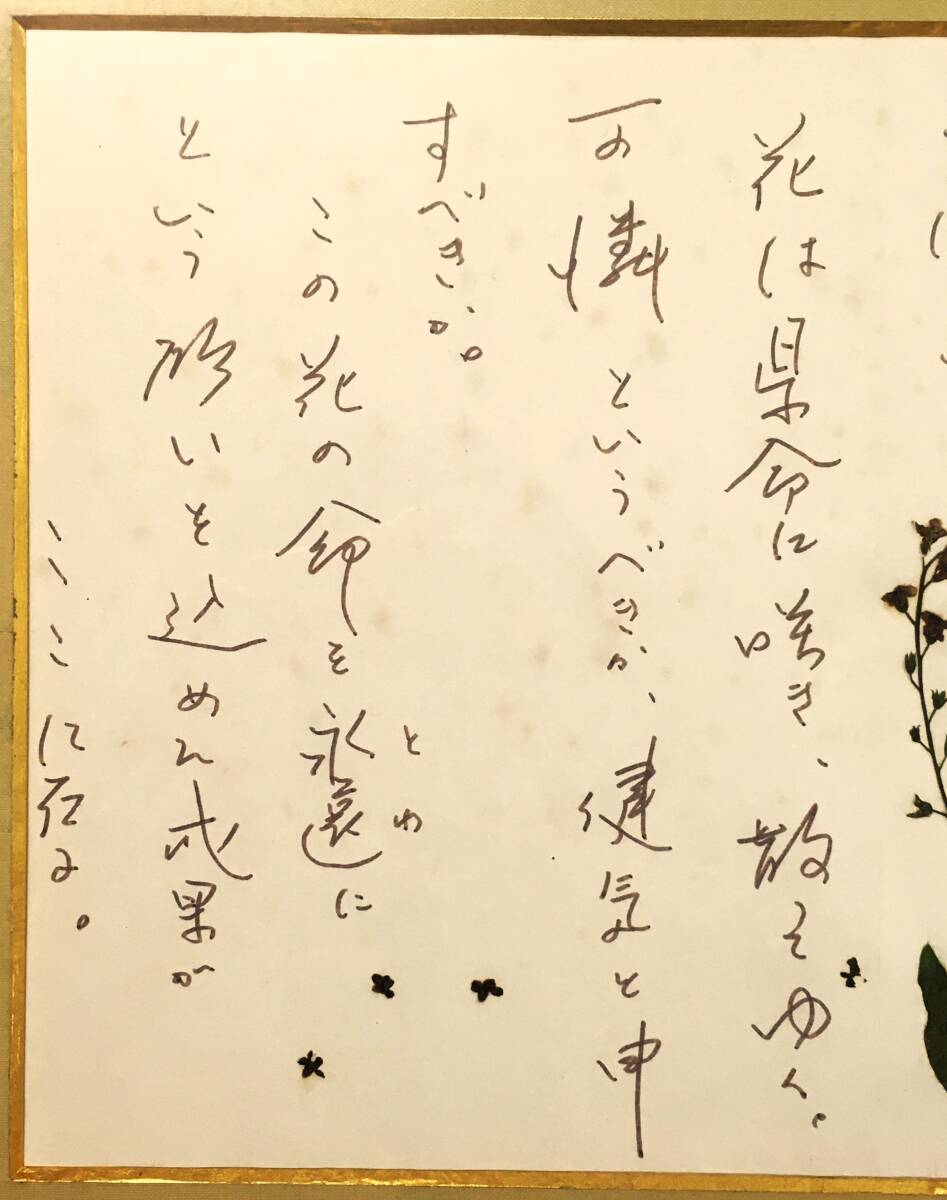 花は県命に咲き、散ってゆく。
可憐というべきか、健気と申
すべきか。
とわ
この花の命を永遠に
という願いを込めた成果が
ここに在る。